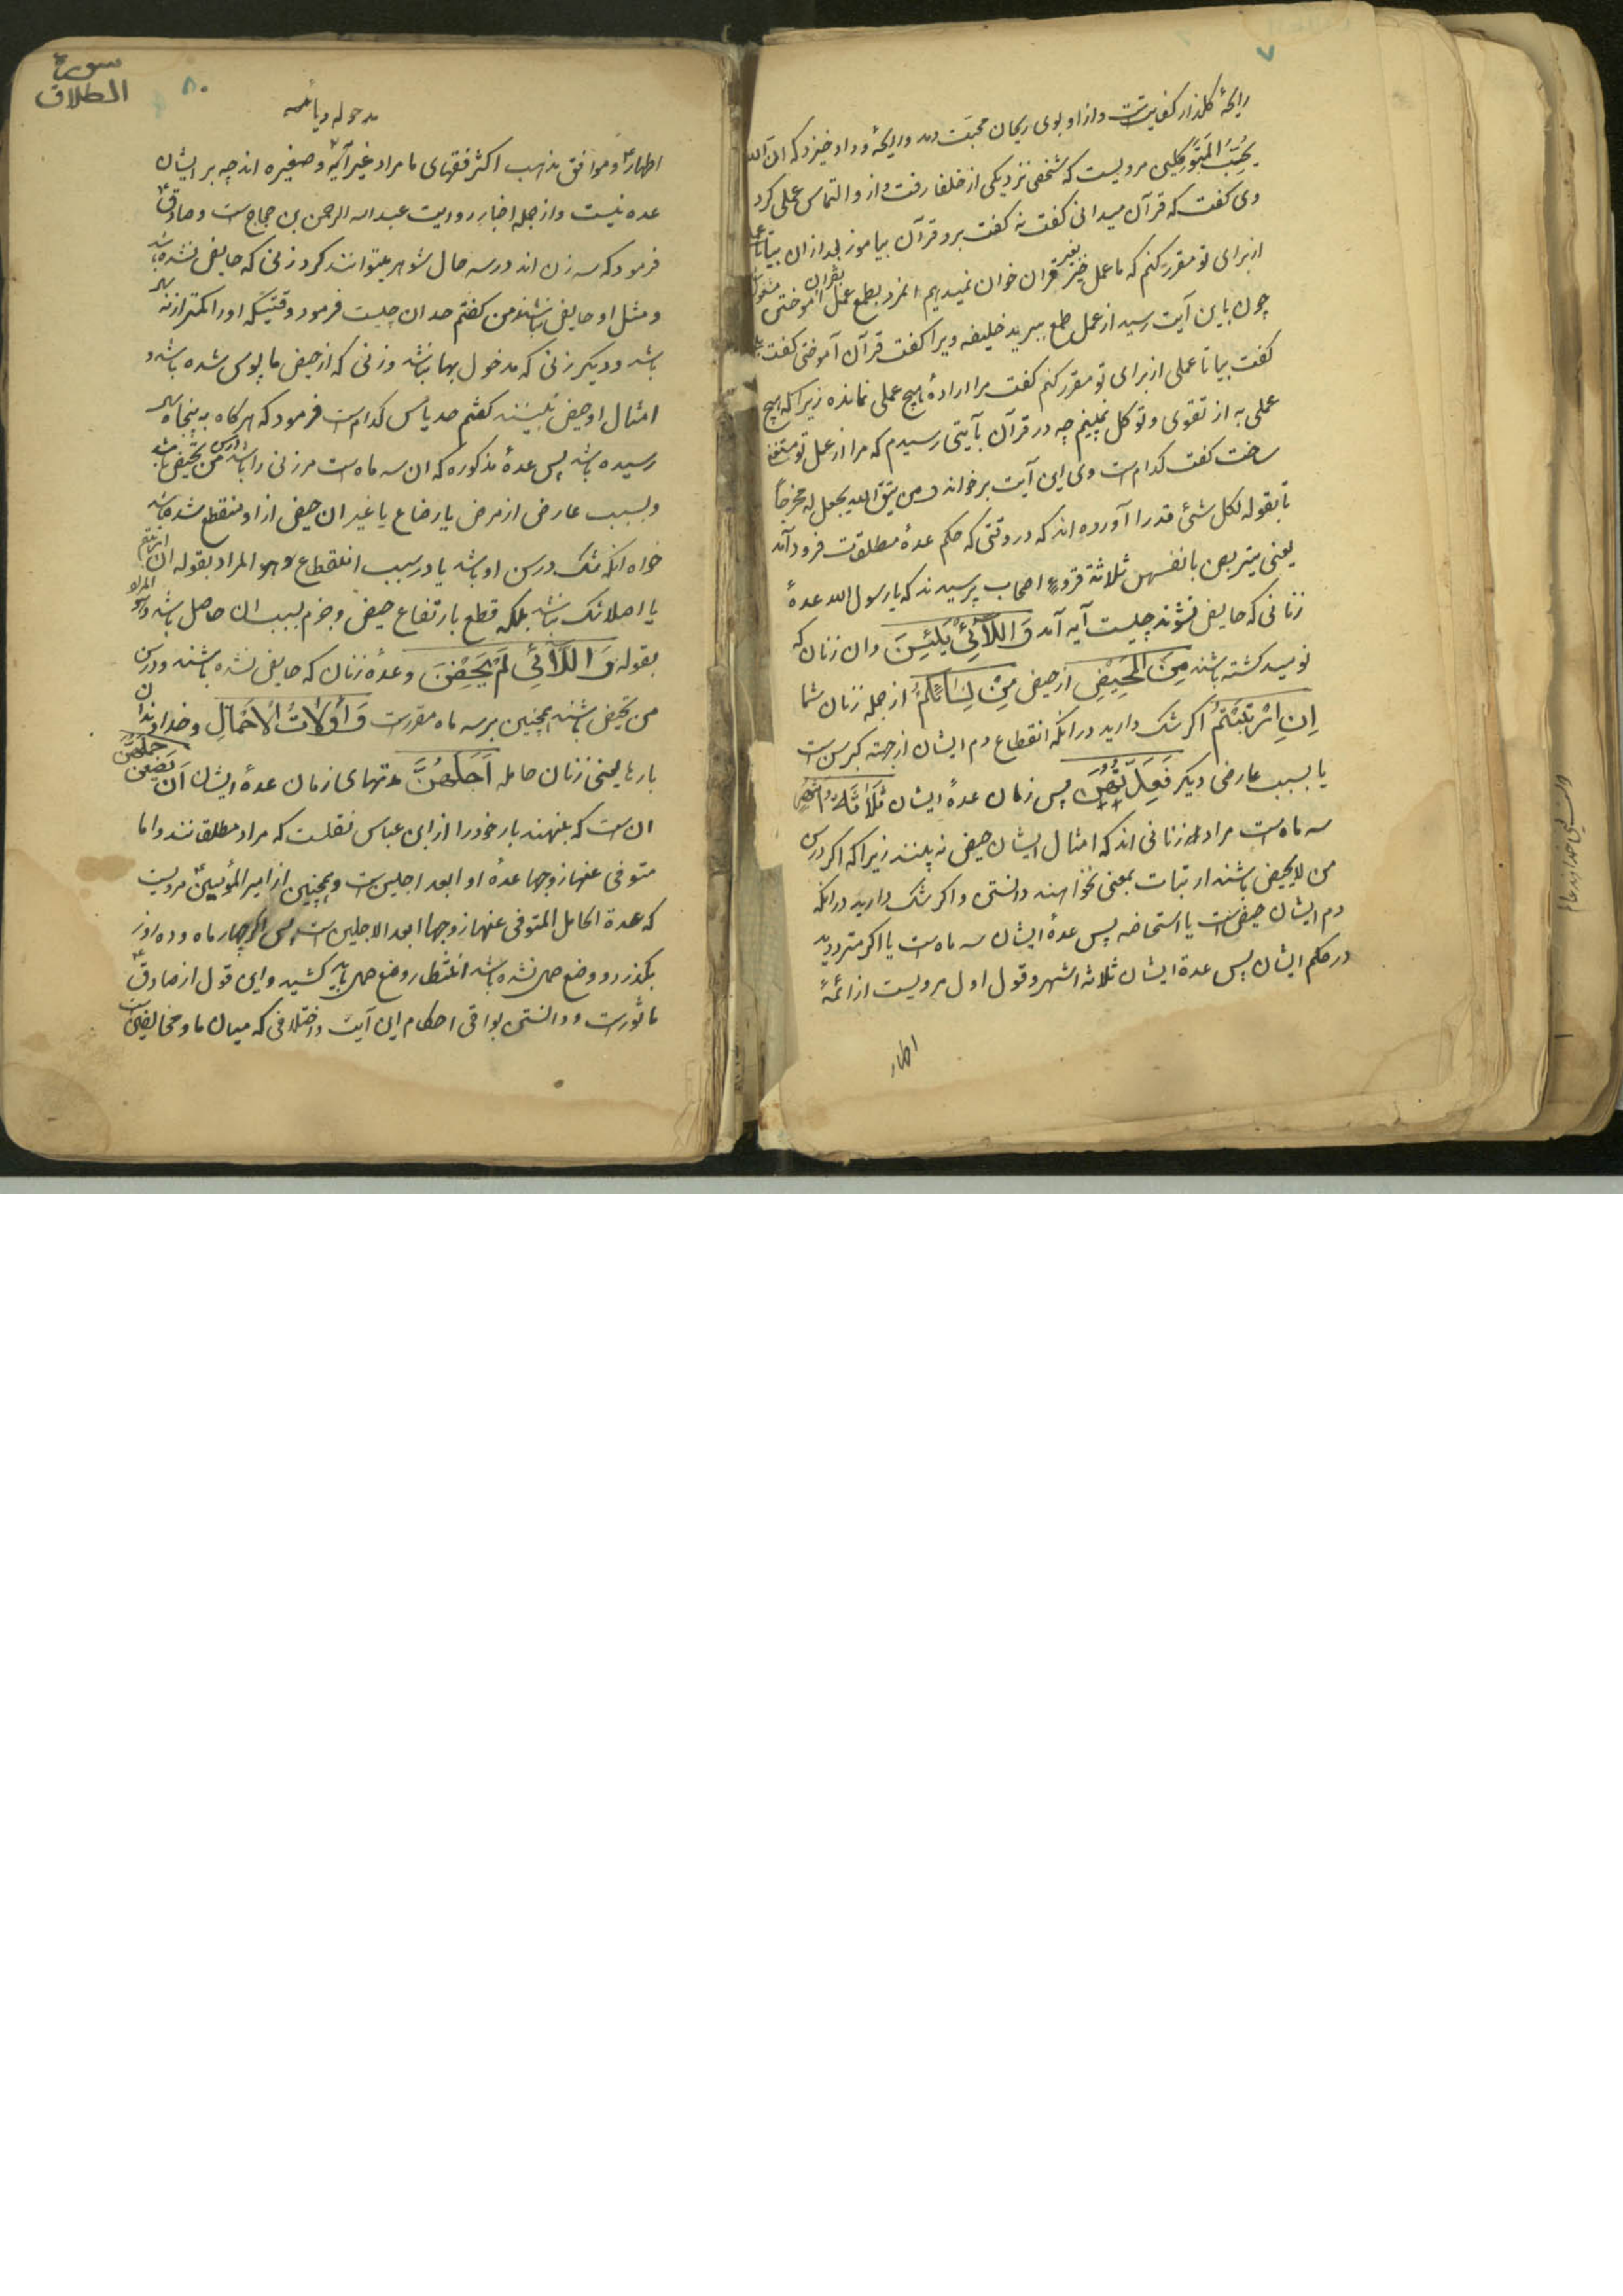 ۷
رایحهٔ گلزار کفایتست و از او بوی ریحان محبت دمد و رایحهٔ وداد خیزد که ان الله
یُحِبُّ المُتَوَکِّلین مرویست که شخصی نزدیکی از خلفا رفت و از و التماس عملی کرد
وی کفت که قرآن میدانی کفت نه کفت برو قرآن بیاموز بعد از ان بیا تا عمل
از برای تو مقرر کنم که ما عمل خیر بغیر قران خوان نمیدهیم انمرد بطمع عمل بقران آموختن مشغول
چون باین آیت رسید از عمل طمع ببرید خلیفه ویرا کفت قرآن آموختی کفت
کفت بیا تا عملی از برای تو مقرر کنم کفت مرا ارادهٔ هیچ عملی نمانده زیرا که هیچ
عملی به از تقوی و توکل نمیبینم چه در قرآن بآیتی رسیدم که مرا از عمل تو مستغنی
ساخت کفت کدام است وی این آیت برخواند و من یتق الله یجعل له مخرجاً
تا بقوله لکل شئ قدرا آورده اند که در وقتی که حکم عدهٔ مطلقات فرود آمد
یعنی یتربصن بانفسهن ثلاثة قروء اصحاب پرسیدند که یا رسول الله عدهٔ
زنانی که حایض نشوند چیست آیه آمد وَ اللّائِی یَئِسْنَ و ان زنان که
نومید کشته باشند مِنَ المَحِیْضِ از حیض مِنْ نِسَائِکُمْ از جمله زنان شما
اِنِ ارْتَبْتُمْ اکر شک دارید در انکه انقطاع دم ایشان از جهته کبر سن است
یا بسبب عارضی دیکر فَعِدَّتُهُنَّ پس زمان عدهٔ ایشان ثَلَاثَةُ اَشْهُرٍ
سه ماه است مراد زنانی اند که امثال ایشان حیض نه بینند زیرا که اکر در سن
من لا یحیض باشند ارتیاب بمعنی نخواهند دانستن و اکر شک دارید در انکه
دم ایشان حیض است یا استحاضه پس عدهٔ ایشان سه ماه است یا اکر مترددید
در حکم ایشان پس عدة ایشان ثلاثه اشهر و قول اول مرویست از ائمهٔ
اطهار
۸۰
سورة
الطلاق
اطهار و موافق مذهب اکثر فقهای ما مراد غیر آیه و صغیره اند چه بر ایشان
عده نیست و از جمله اخبار روایت عبد الله الرحمن بن حجاج است و صادق
فرمود که سه زن اند در سه حال شوهر میتوانند کرد زنی که حایض نشده باشد
و مثل او حایض نباشند من کفتم حد ان چیست فرمود وقتیکه او را کمتر از نه سال
باشد و دیکر زنی که مدخول بها نباشد و زنی که از حیض مایوس شده باشد و
امثال او حیض نبینند کفتم حد یأس کدام است فرمود که هرکاه به پنجاه سال
رسیده باشد پس عدهٔ مذکوره که ان سه ماه است مر زنی را باشد در سن من تحیض باشد
و بسبب عارضی از مرض یا رضاع یا غیر ان حیض از او منقطع شده باشد
خواه انکه شک در سن او باشد یا در سبب انقطاع و هو المراد بقوله ان ارتبتم
یا اصلا شک نباشد بلکه قطع بارتفاع حیض و جزم بسبب ان حاصل باشد و هو المراد
بقوله وَ اللّائِی لَمْ یَحِضْنَ و عدهٔ زنان که حایض نشده باشند و در سن
من تحیض باشند همچنین بر سه ماه مقررست وَ أُولَاتُ الْاَحْمَالِ و خداوندان
بارها یعنی زنان حامله اَجَلُهُنَّ منتهای زمان عدهٔ ایشان اَنْ یَضَعْنَ حَمْلَهُنَّ
ان است که بنهند بار خود را از ابن عباس نقلست که مراد مطلقه نند و اما
متوفی عنها زوجها عدهٔ او ابعد اجلین است و همچنین از امیر المؤمنین مرویست
که عدة الحامل المتوفی عنها زوجها ابعد الاجلین است پس اکر چهار ماه و ده روز
بکذرد و وضع حمل نشده باشد انتظار وضع حمل باید کشید و این قول از صادق
ماثورست و دانستن بواقی احکام این آیت و اختلافی که میان ما و مخالفین است